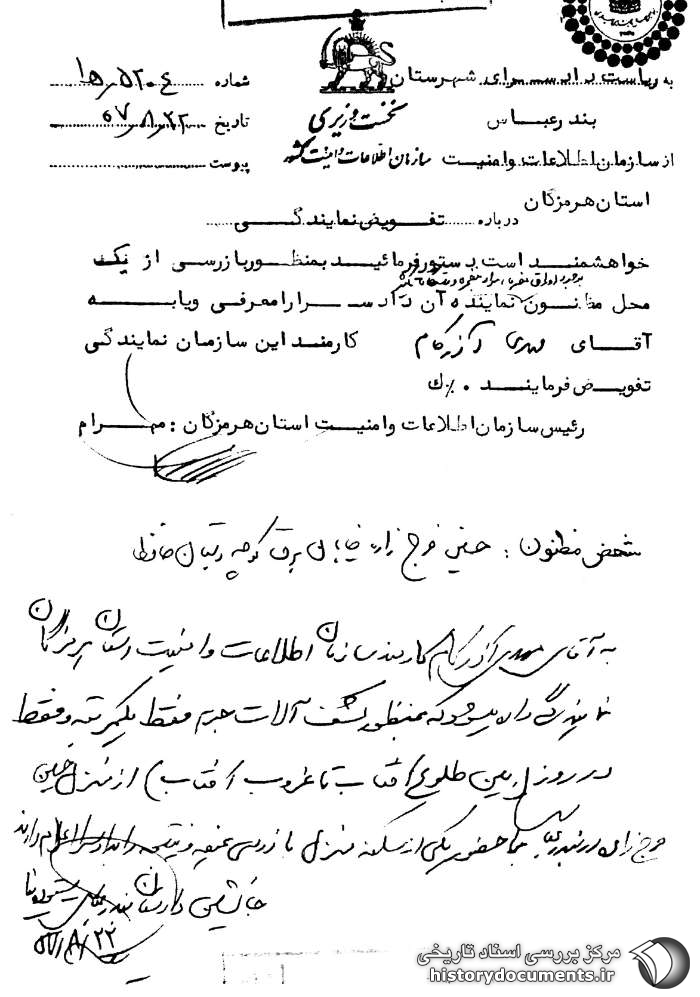 به ریاست دادسرای شهرستان
بندرعباس
از سازمان اطلاعات و امنیت
استان هرمزگان
نخست وزیری
سازمان اطلاعات و امنیت کشور
شماره ۵۲۰۴/ه۱
تاریخ ۵۷/۸/۲۲
پیوست
درباره تفویض نمایندگی
خواهشمند است دستور فرمائید بمنظور بازرسی از یک
محل مظنون نماینده آن دادسرا را معرفی و یا به
آقای مهدی آذرکام کارمند این سازمان نمایندگی
تفویض فرمایند
رئیس سازمان اطلاعات و امنیت استان هرمزگان : مهرام
شخص مظنون : حسین فرج زاده خیابان برق کوچه
به آقای مهدی آذرکام کارمند سازمان اطلاعات و امنیت استان هرمزگان
نمایندگی داده میشود که بمنظور کشف آلات جرم فقط یکمرتبه و فقط
در روز (بین طلوع آفتاب تا غروب آفتاب) از منزل حسین
فرج زاده در بندرعباس با حضور یکی از سکنه منزل بازرسی نموده و نتیجه را به دادسرا اعلام دارند
جانشین دادستان بندرعباس
۵۷/۸/۲۲
مرکز بررسی اسناد تاریخی
historydocuments.ir